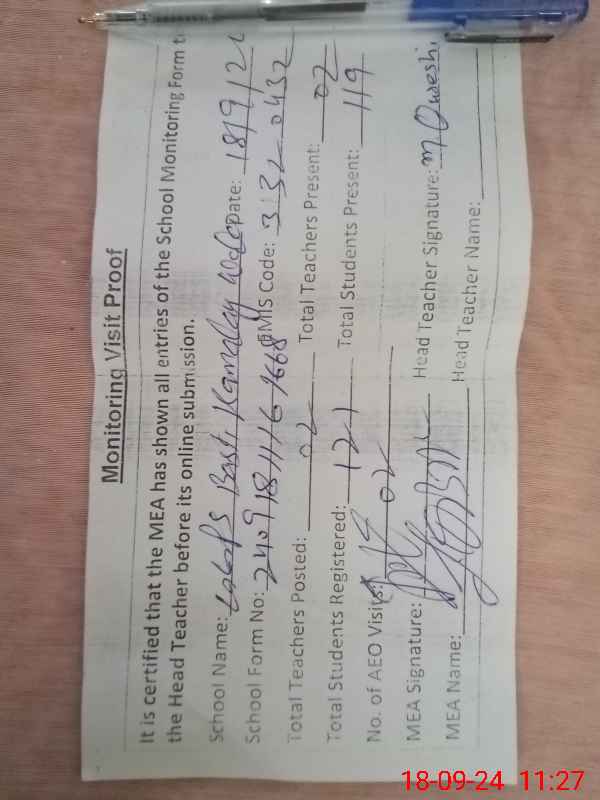 Monitoring Visit Proof
It is certified that the MEA has shown all entries of the School Monitoring Form to
the Head Teacher before its online submission.
School Name: Basti Kamalay Date: 18/9/2
School Form No: EMIS Code: 31320432
Total Teachers Posted: 02 Total Teachers Present: 02
Total Students Registered: 121 Total Students Present: 119
No. of AEO Visits: 02
MEA Signature: Head Teacher Signature: M Qureshi
MEA Name: Head Teacher Name:
18-09-24 11:27